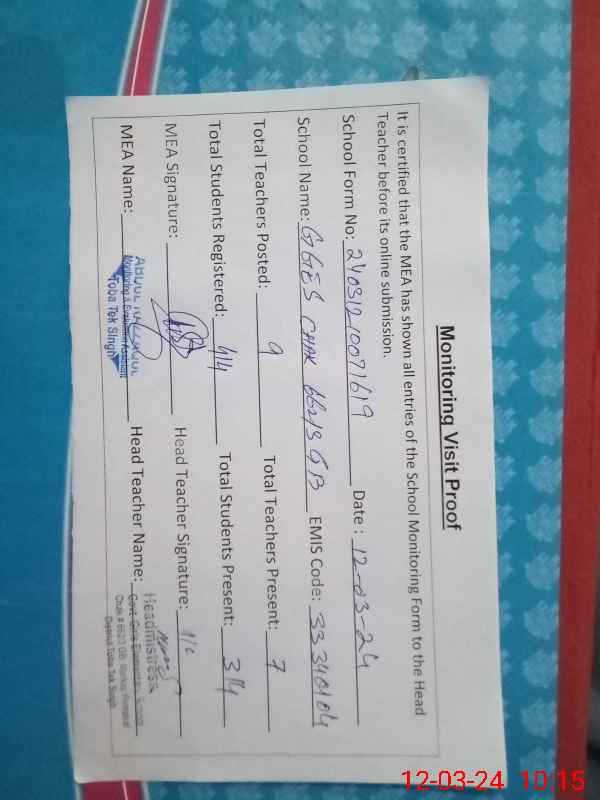 Monitoring Visit Proof
It is certified that the MEA has shown all entries of the School Monitoring Form to the Head
Teacher before its online submission.
School Form No: 24031210071619 Date : 12-03-24
School Name: GGES CHAK 662/3 GB EMIS Code: 33340104
Total Teachers Posted: 9 Total Teachers Present: 7
Total Students Registered: 414 Total Students Present: 314
MEA Signature: Head Teacher Signature:
MEA Name: Head Teacher Name:
Monitoring & Evaluation Assistant
Toba Tek Singh
Headmistress
Govt. Girls Elementary School
District Toba Tek Singh
12-03-24 10:15